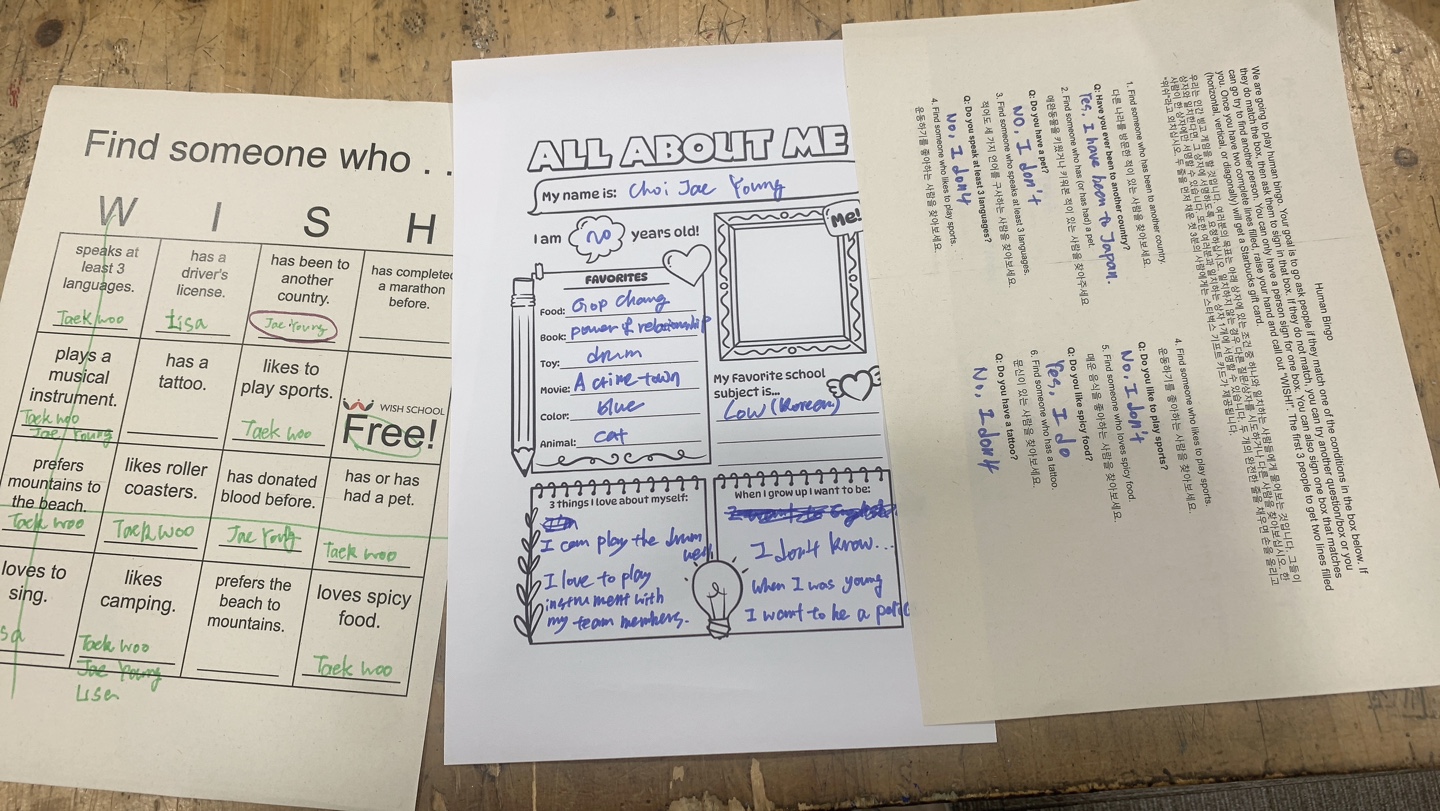 Find someone who . .
W I S H
speaks at least 3 languages.
Taek woo
has a driver's license.
Lisa
has been to another country.
Jae Young
has completed a marathon before.
plays a musical instrument.
Taek woo
Jae Young
has a tattoo.
likes to play sports.
Taek woo
WISH SCHOOL
Free!
prefers mountains to the beach.
Taek woo
likes roller coasters.
Taek woo
has donated blood before.
Jae Young
has or has had a pet.
Taek woo
loves to sing.
sa
likes camping.
Taek woo
Jae Young
Lisa
prefers the beach to mountains.
loves spicy food.
Taek woo
ALL ABOUT ME
My name is: Choi Jae Young
I am no years old!
Me!
FAVORITES
Food: Gop chang
Book: power of relationship
Toy: drum
Movie: A crime town
Color: blue
Animal: cat
My Favorite school
subject is...
Low (Korean)
3 things I love about myself:
I can play the drum
well
I love to play
instrument with
my team members.
When I grow up I want to be:
I don't know...
When I was young
I want to be a
Human Bingo
We are going to play human bingo. Your goal is to go ask people if they match one of the conditions in the box below. If
they do match the box, then ask them to sign in that box. If they do not match, you can try another question/box or you
can go try to find another person. You can only have a person sign for one box. You can also sign one box that matches
you. Once you have two complete lines filled, raise your hand and call out "WISH!". The first 3 people to get two lines filled
(horizontal, vertical, or diagonally) will get a Starbucks gift card.
1. Find someone who has been to another country.
다른 나라를 방문한 적이 있는 사람을 찾아보세요.
Q: Have you ever been to another country?
Yes, I have been to Japan.
2. Find someone who has (or has had) a pet.
애완동물을 키웠거나 키워본 적이 있는 사람을 찾아주세요
Q: Do you have a pet?
NO, I don't
3. Find someone who speaks at least 3 languages.
적어도 세 가지 언어를 구사하는 사람을 찾아보세요.
Q: Do you speak at least 3 languages?
No, I don't
4. Find someone who likes to play sports.
운동하기를 좋아하는 사람을 찾아보세요.
4. Find someone who likes to play sports.
운동하기를 좋아하는 사람을 찾아보세요.
Q: Do you like to play sports?
No, I don't
5. Find someone who loves spicy food.
매운 음식을 좋아하는 사람을 찾아보세요.
Q: Do you like spicy food?
Yes, I do
6. Find someone who has a tattoo.
문신이 있는 사람을 찾아보세요.
Q: Do you have a tattoo?
No, I don't